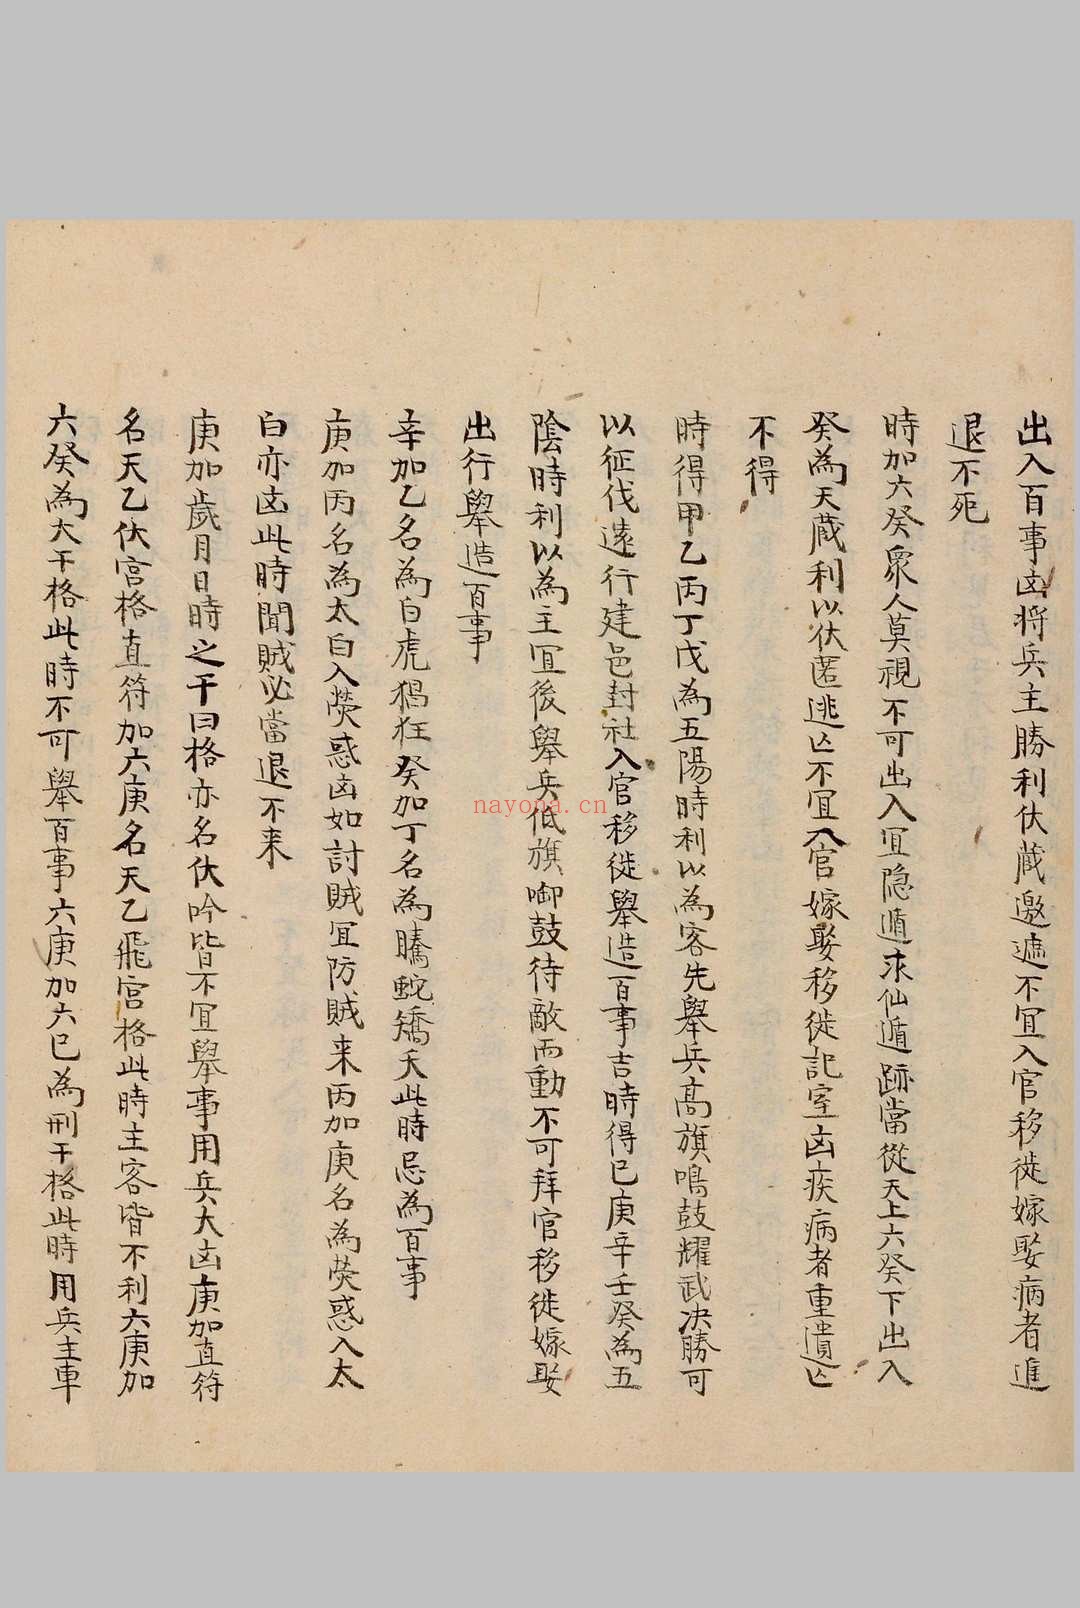 出入百事凶将兵主勝利伏蔵邀遮不冝入官移徙嫁娶病者進
退不死
時加六癸衆人莫視不可出入冝隐遁求仙遁跡當從天上六癸下出入
癸為天蔵利以伏匿逃亾不冝入官嫁娶移徙記室凶疾病者重遺亾
不得
時得甲乙丙丁戊為五陽時利以為客先舉兵高旗鳴鼓耀武决勝可
以征伐遠行建邑封社入官移徙舉造百事吉時得已庚辛壬癸為五
陰時利以為主冝後舉兵低旗啣鼓待敵而動不可拜官移徙嫁娶
出行舉造百事
辛加乙名為白虎猖狂癸加丁名為騰蛇矯夭此時忌為百事
庚加丙名為太白入熒惑凶如討賊冝防賊来丙加庚名為熒惑入太
白亦凶此時聞賊必當退不来
庚加歲月日時之干曰格亦名伏吟皆不冝舉事用兵大凶庚加直符
名天乙伏宮格直符加六庚名天乙飛宮格此時主客皆不利六庚加
六癸為大干格此時不可舉百事六庚加六已為刑干格此時用兵主車
nayona.cn